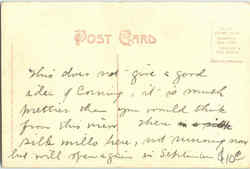 POST CARD
This does not give a good
idea of Corning, it is much
prettier than you would think
from this view. There is a silk
silk mills here, not running now
but will open again in September
10c